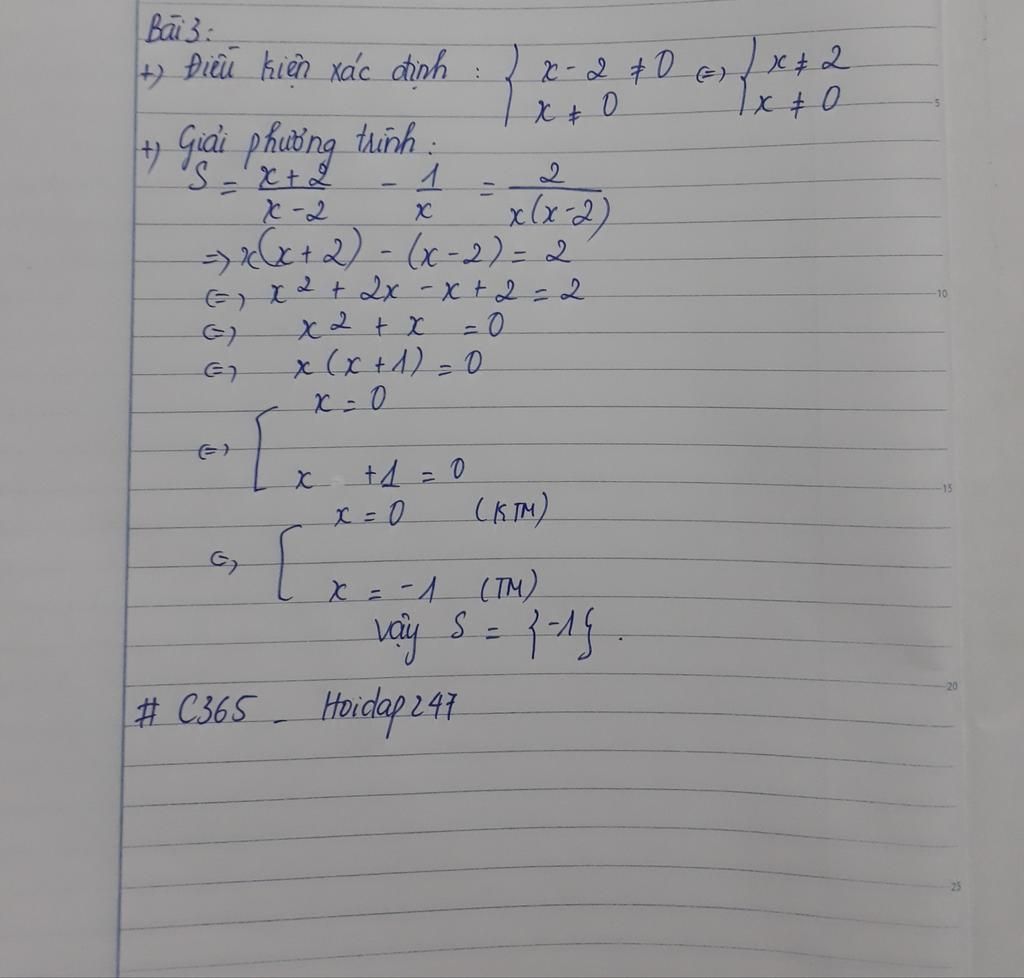 Bài 3:
+) Điều kiện xác định : { x - 2 ≠ 0 ⇔ { x ≠ 2
x ≠ 0 x ≠ 0
+) Giải phương trình :
S = (x + 2)/(x - 2) - 1/x = 2/(x(x-2))
=> x(x + 2) - (x - 2) = 2
⇔ x² + 2x - x + 2 = 2
⇔ x² + x = 0
⇔ x (x + 1) = 0
x = 0
⇔ [
x + 1 = 0
x = 0 (KTM)
⇔ [
x = -1 (TM)
Vậy S = {-1}.
# C365 - Hoidap247
5
10
15
20
25